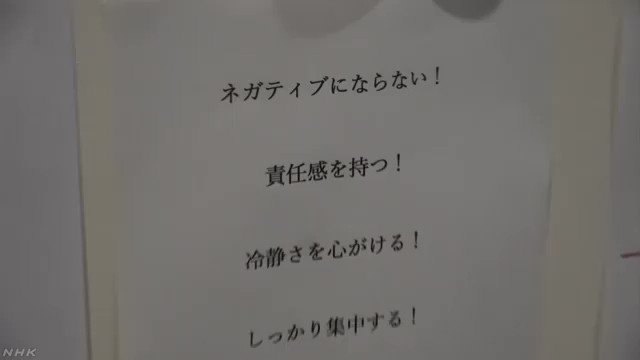 ネガティブにならない！
責任感を持つ！
冷静さを心がける！
しっかり集中する！
NHK